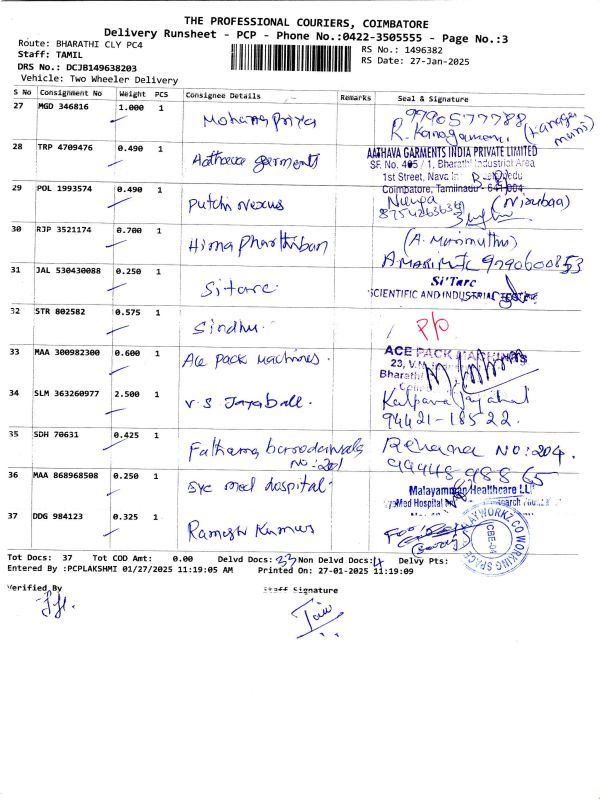 THE PROFESSIONAL COURIERS, COIMBATORE
Delivery Runsheet - PCP - Phone No.:0422-3505555 - Page No.:3
Route: BHARATHI CLY PC4
RS No.: 1496382
Staff: TAMIL
RS Date: 27-Jan-2025
DRS No.: DCJB149638203
Vehicle: Two Wheeler Delivery
S No Consignment No Weight PCS Consignee Details Remarks Seal & Signature
27 MGD 346816 1.000 1 Mohana Priya 9790577788
R. Kanagamani. (Kanagamani)
28 TRP 4709476 0.490 1 Aathava garments AATHAVA GARMENTS INDIA PRIVATE LIMITED
SF. No. 405 / 1, Bharathi Industrial Area
1st Street, Nava
Coimbatore, Tamilnadu - 641 004
29 POL 1993574 0.490 1 Putchi nexus
30 RJP 3521174 0.700 1 Hima Pharthiban (A. Marimuthu)
9790600853
31 JAL 530430088 0.250 1 Sitarc Si'Tarc
SCIENTIFIC AND INDUSTRIAL
32 STR 802582 0.575 1 Sindhu. P/O
33 MAA 300982300 0.600 1 Ace pack Machines. ACE PACK MACHINES
23, V.
Bharathi
34 SLM 363260977 2.500 1 V.S Jayaball. Kalpana Jayabal
94421-18522.
35 SDH 70631 0.425 1 Fathama barodawala
NO:201
Rehana NO:204.
99948 98865
36 MAA 868968508 0.250 1 Eye med dospital. Malayamman Healthcare LL
Med Hospital and Research Found
37 DDG 984123 0.325 1 Ramesh Kumar
WORKZ CO WORKING SPACE
CBE-04
Tot Docs: 37 Tot COD Amt: 0.00 Delvd Docs: 33 Non Delvd Docs: 4 Delvy Pts:
Entered By :PCPLAKSHMI 01/27/2025 11:19:05 AM Printed On: 27-01-2025 11:19:09
Verified By Staff Signature